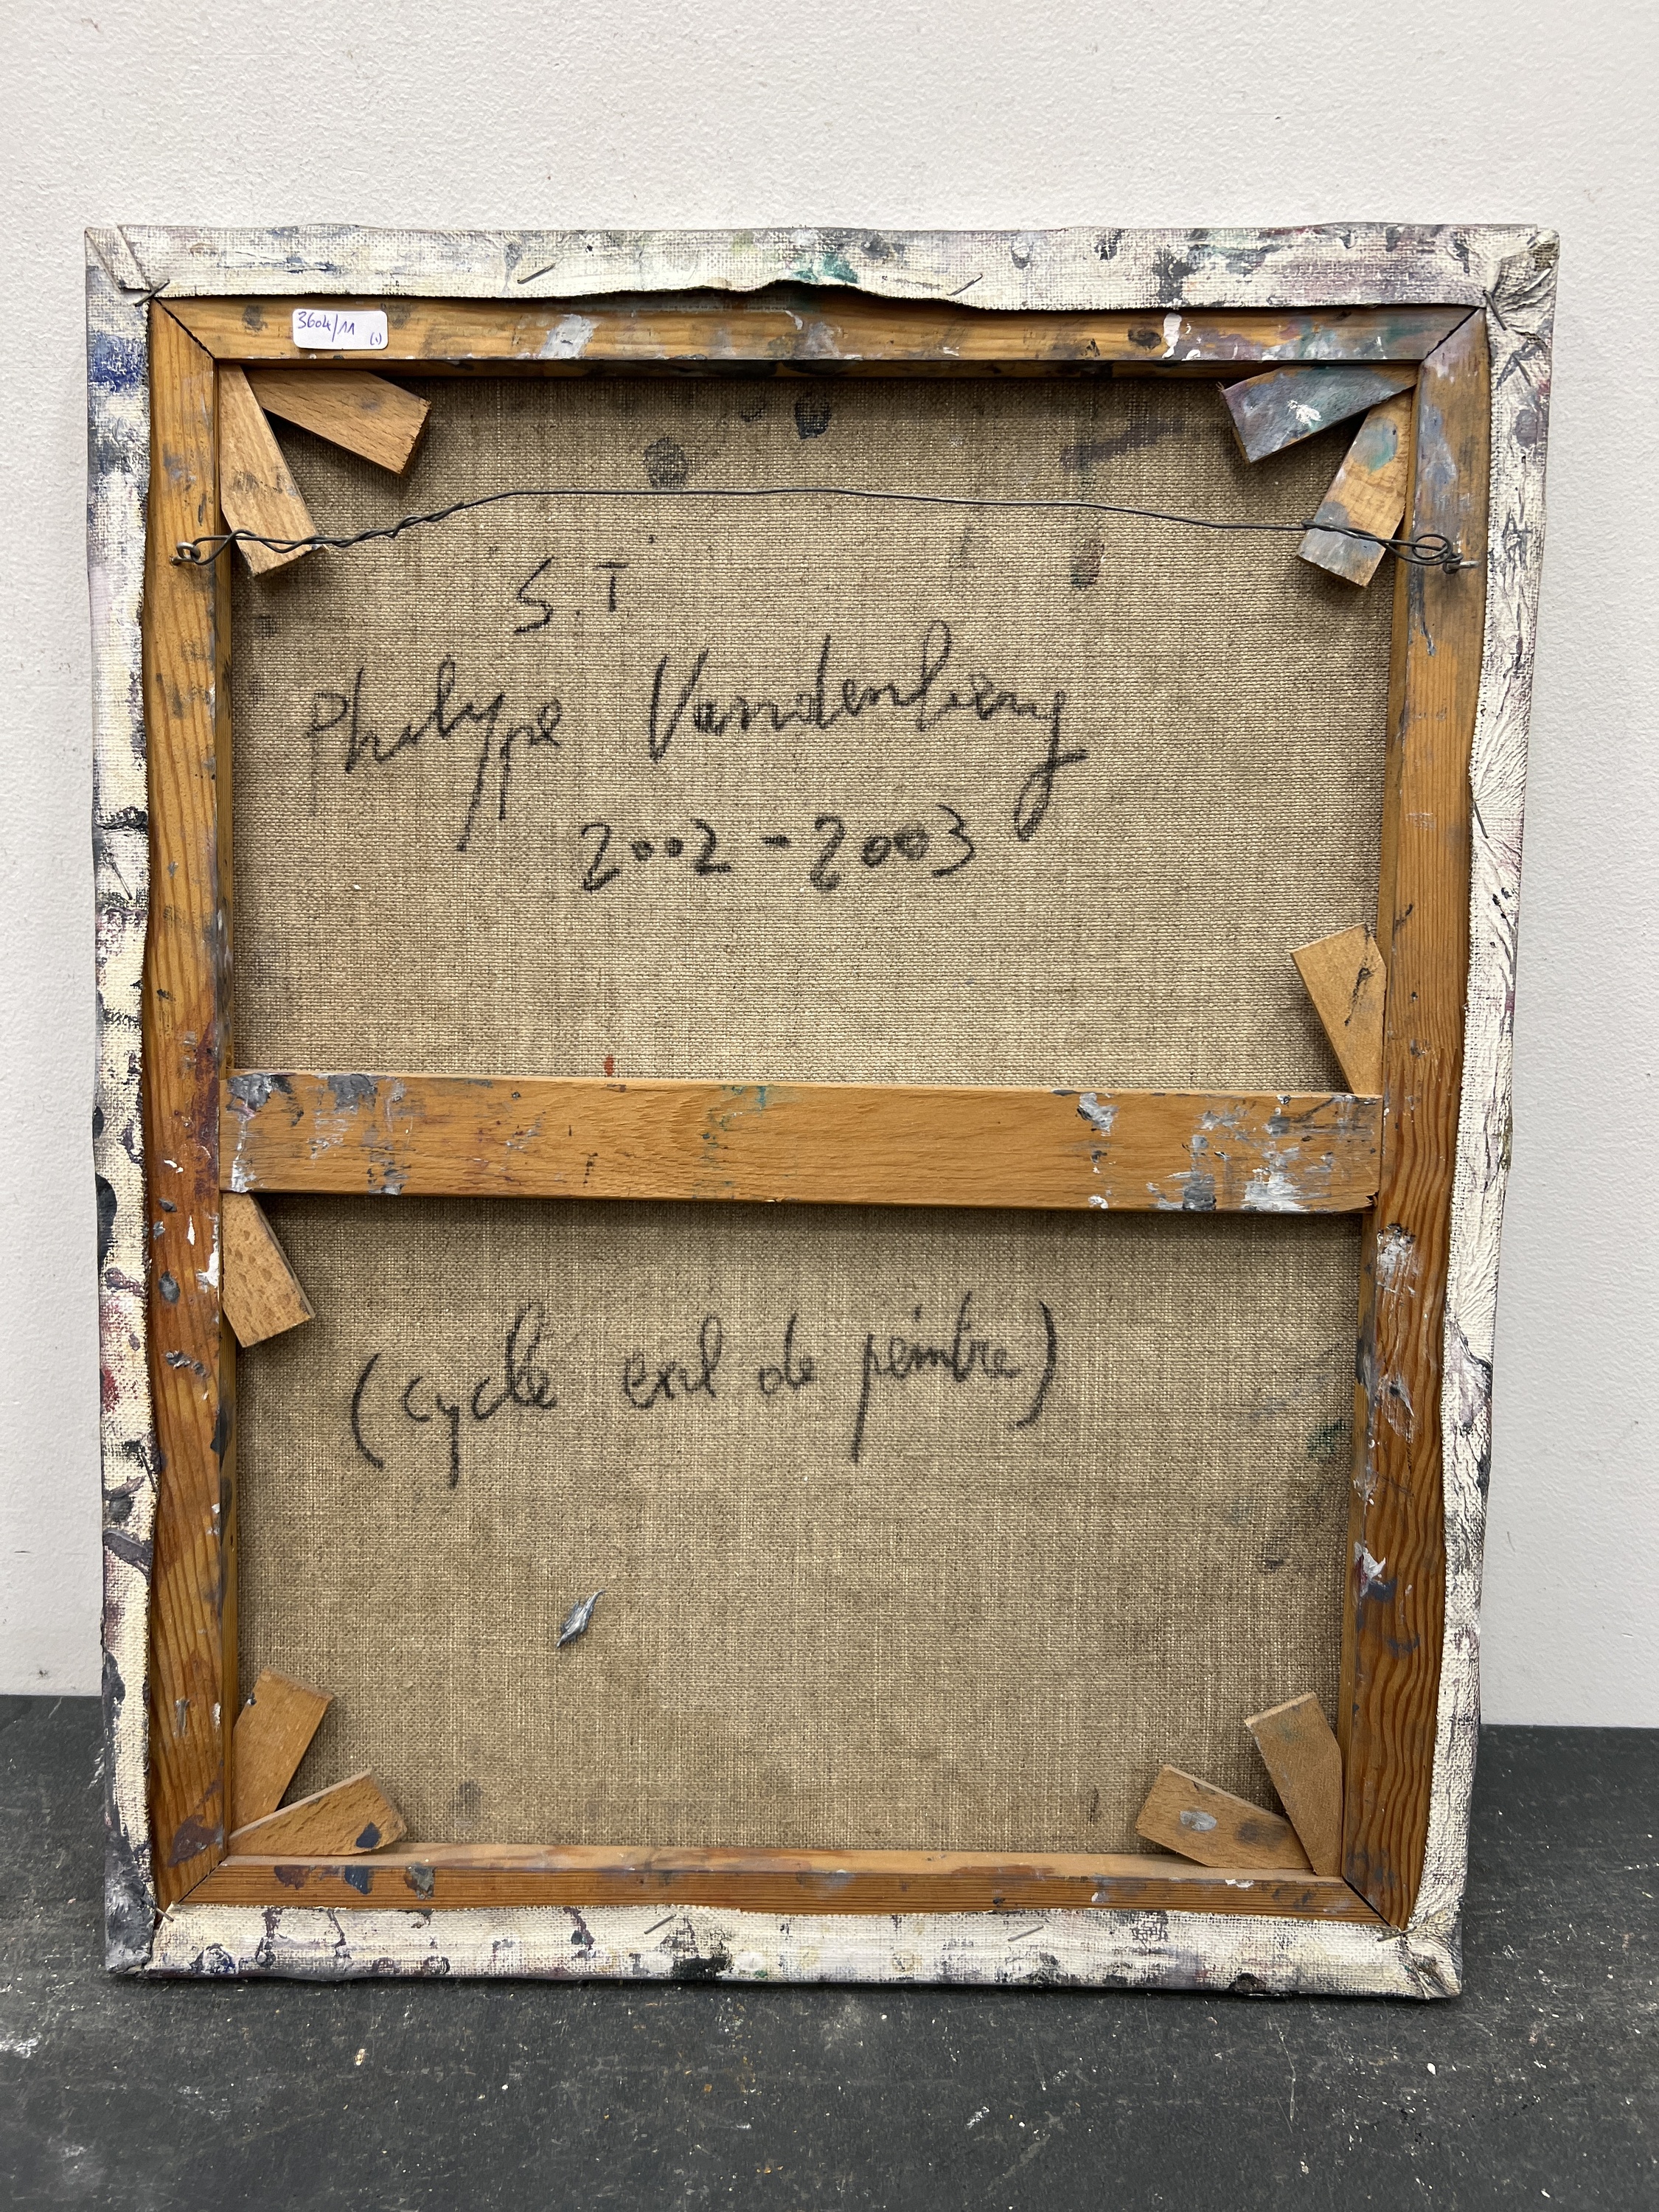 3604/11
(1)
S.T
Philippe Vandenberg
2002-2003
(cycle exil de peintre)